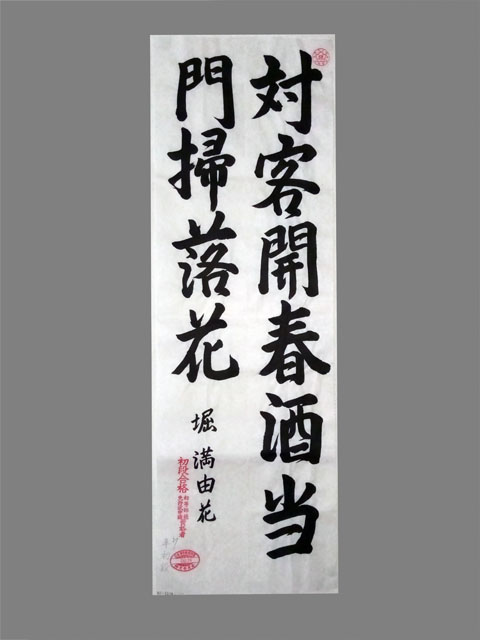 対客開春酒当
門掃落花
堀 満由花
初段合格